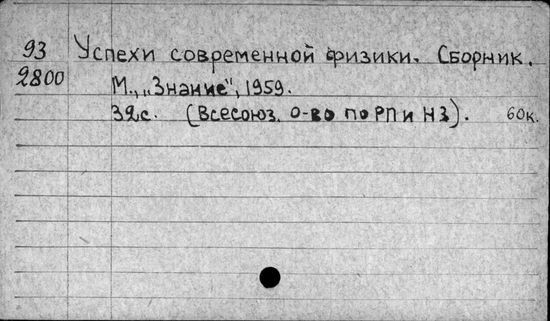 93 Успехи современной физики. Сборник.
2800 М., „Знание", 1959.
32с. (Всесоюз. О-во по РП и НЗ). 60к.